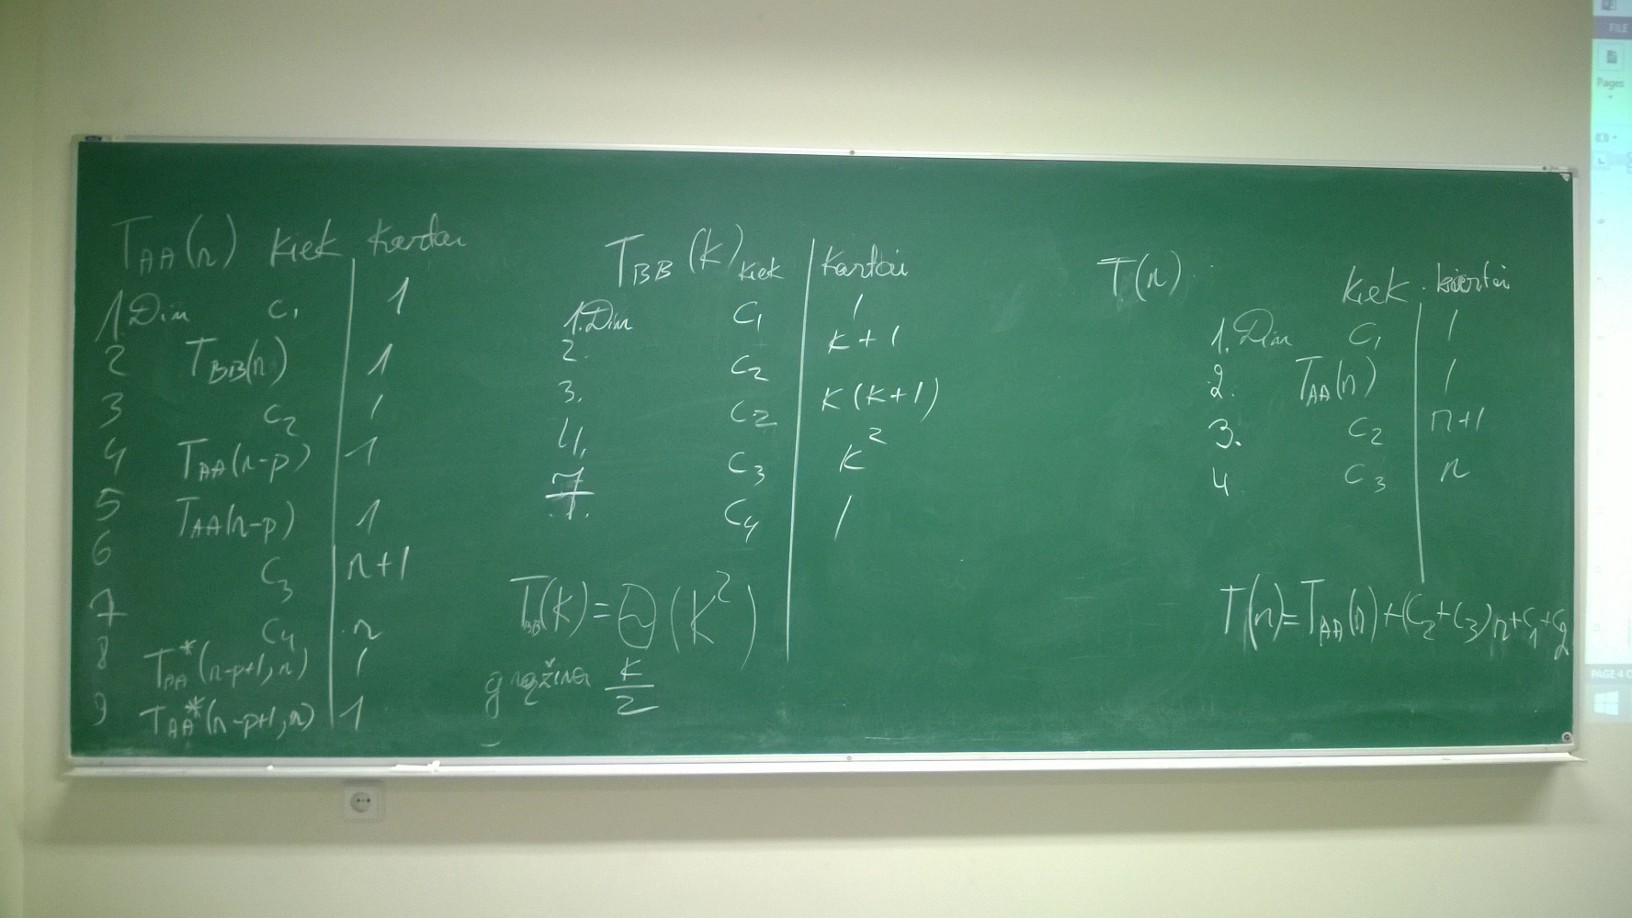 T_AA(n) kiek kartai
1. Dim c₁ 1
2 T_BB(n) 1
3 c₂ 1
4 T_AA(n-p) 1
5 T_AA(n-p) 1
6 c₃ n+1
7 c₄ n
8 T_AA*(n-p+1, n) 1
9 T_AA*(n-p+1, n) 1
T_BB(k) kiek kartai
1. Dim c₁ 1
2. c₂ k+1
3. c₂ k(k+1)
4. c₃ k²
7 c₄ 1
T_BB(k) = Θ(k²)
grąžina k/2
T(n) kiek kartai
1. Dim c₁ 1
2. T_AA(n) 1
3. c₂ n+1
4 c₃ n
T(n) = T_AA(n) + (c₂+c₃)n + c₁ + c₂
FILE
Pages
PAGE 4 O